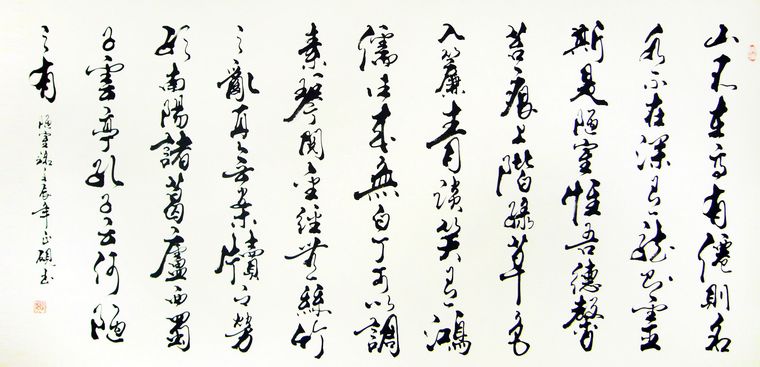 山不在高有僊則名
水不在深有龍則靈
斯是陋室惟吾德馨
苔痕上階綠草色
入簾青談笑有鴻
儒往來無白丁可以調
素琴閱金經無絲竹
之亂耳無案牘之勞
形南陽諸葛廬西蜀
子雲亭孔子云何陋
之有
陋室銘壬辰年正硯書